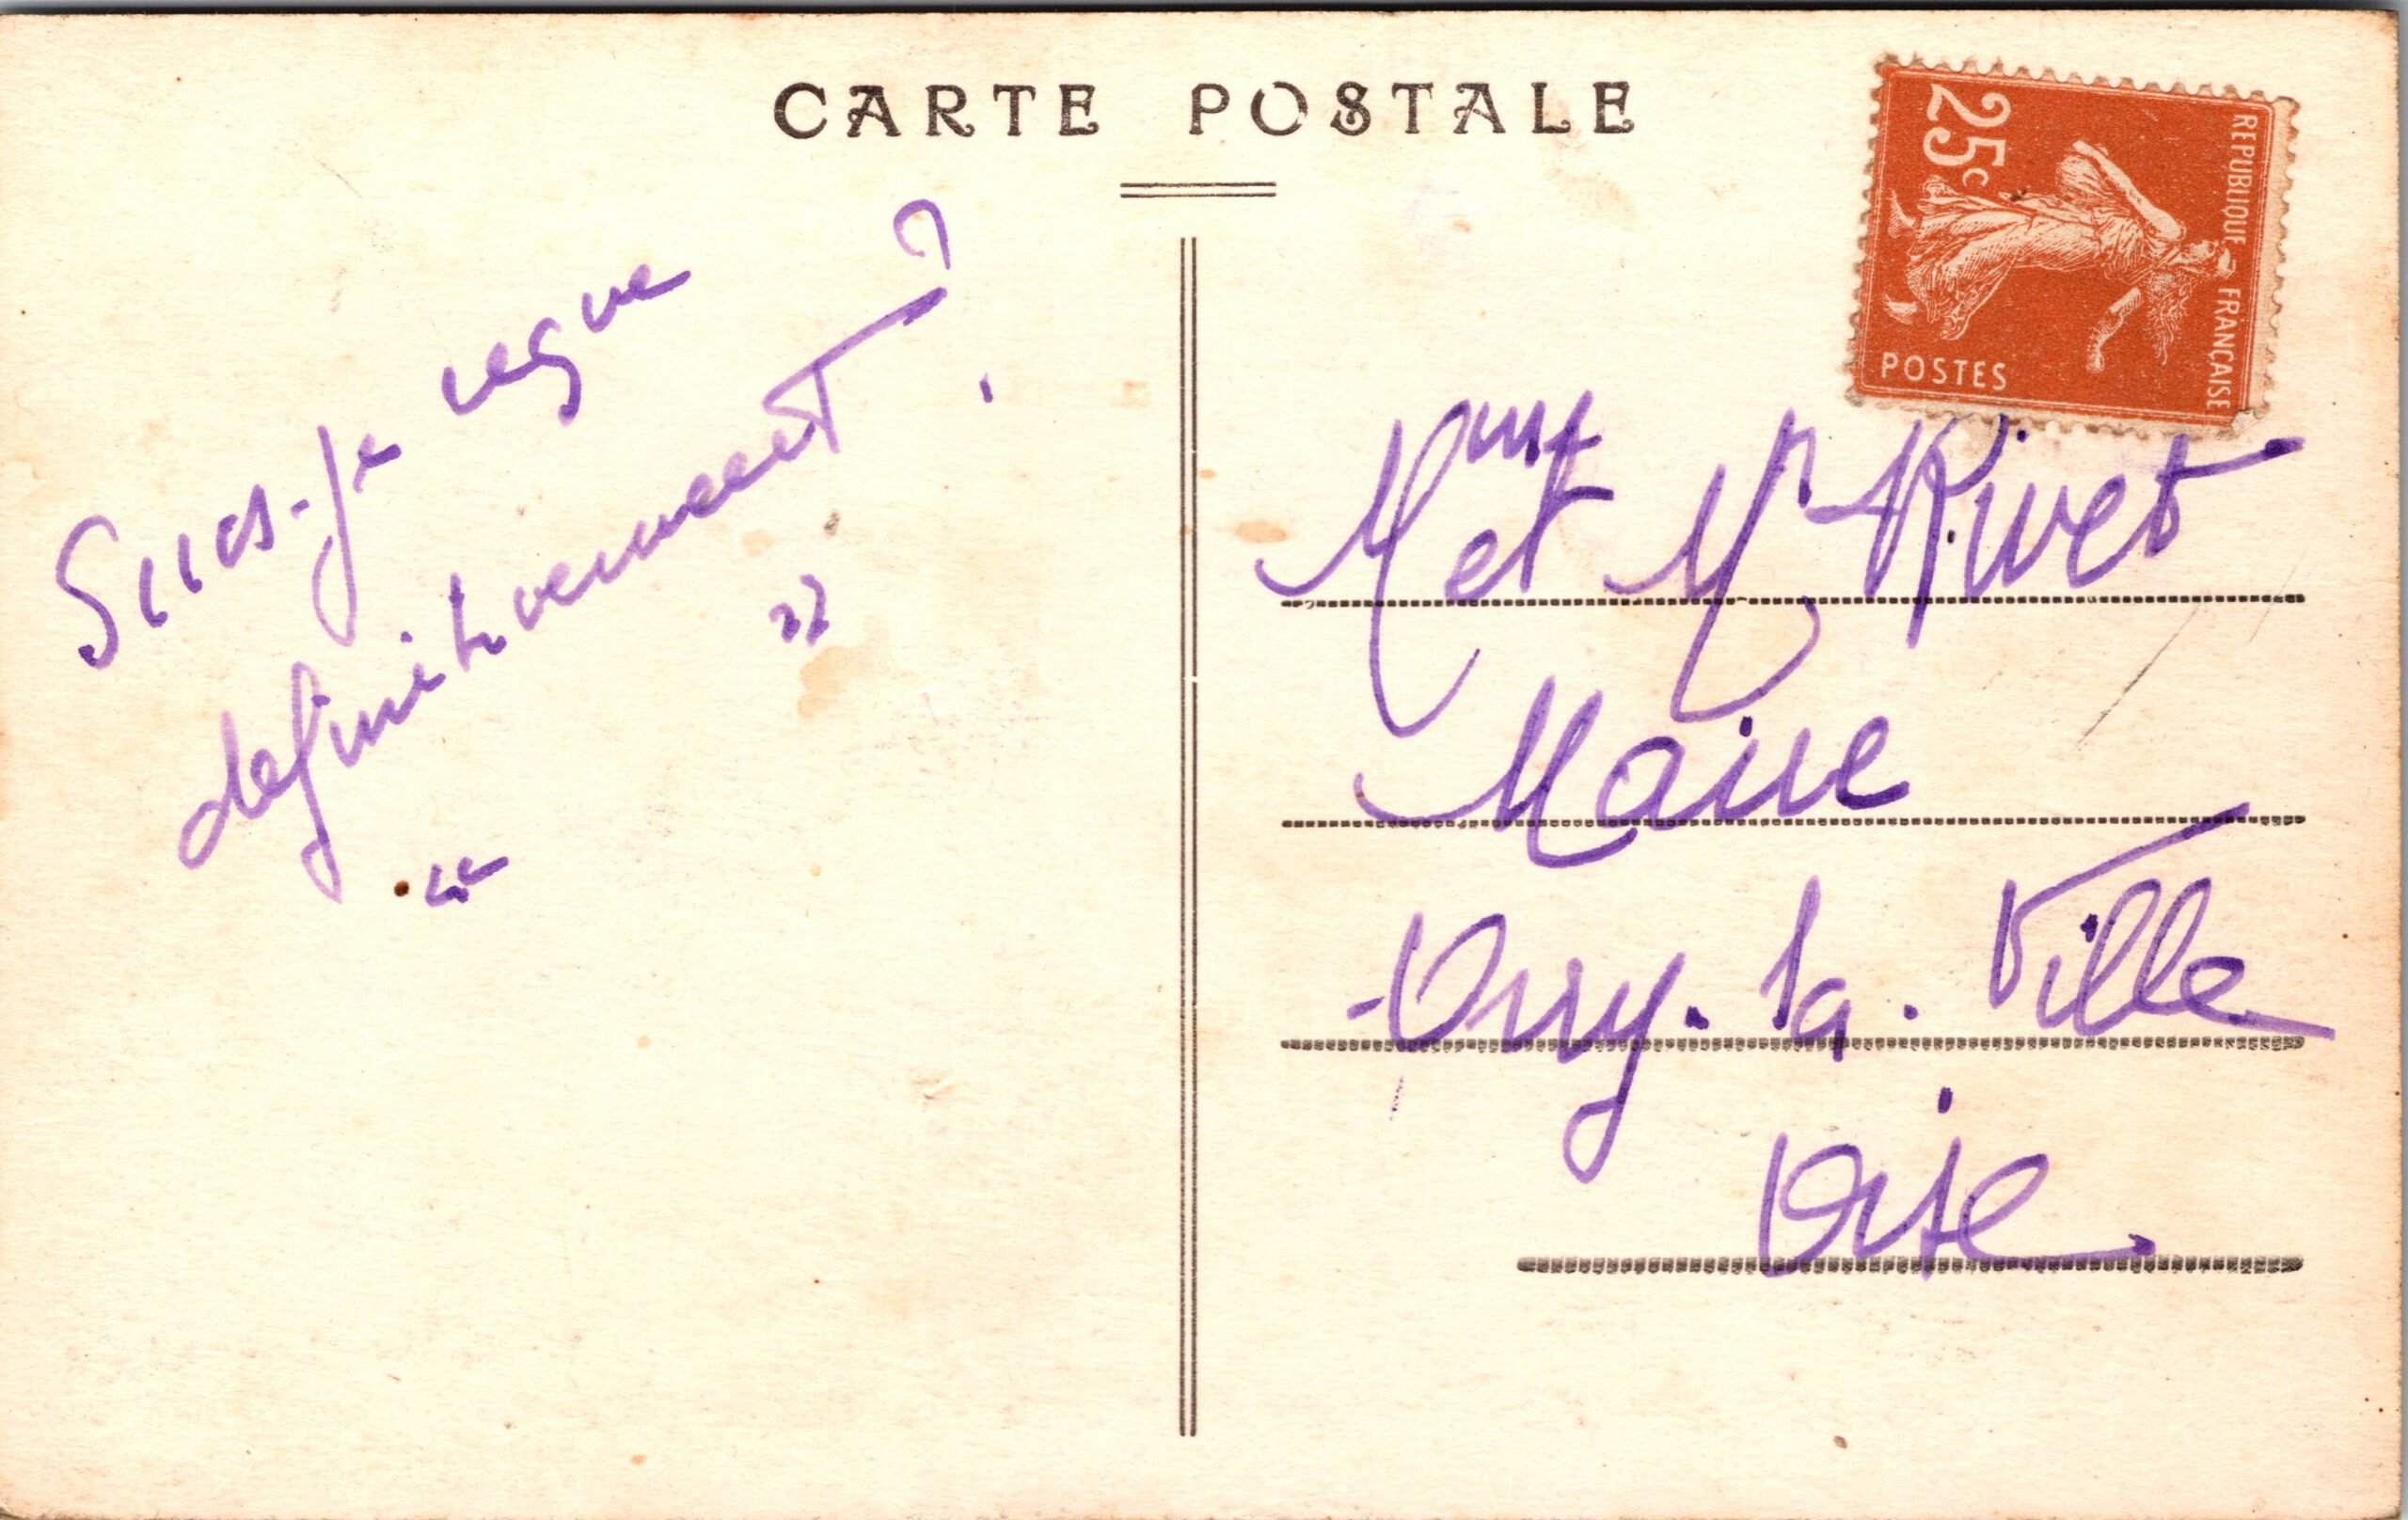 CARTE POSTALE
25c
REPUBLIQUE FRANÇAISE
POSTES
Suis-je reçue
definitivement ?
Mme et Mr Rivet
Maire
Orry-la-Ville
Oise